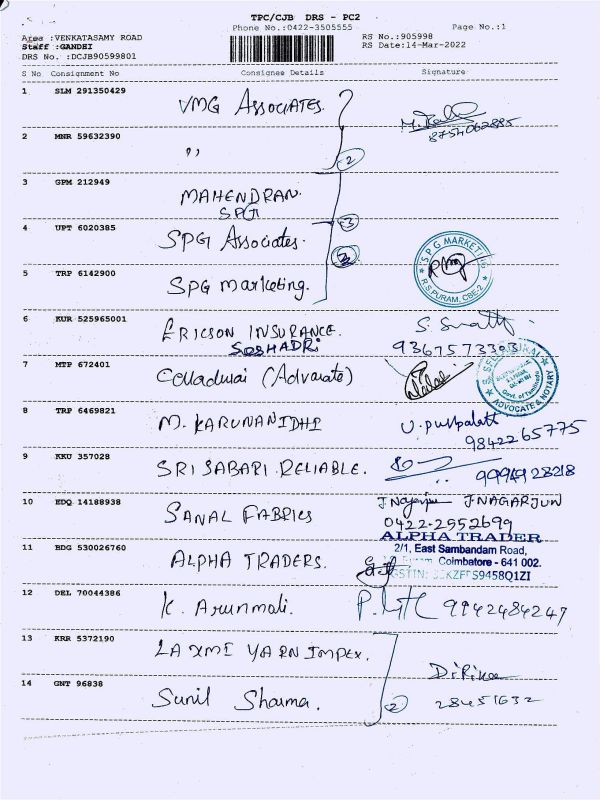 TPC/CJB DRS - PC2
Phone No.:0422-3505555 Page No.:1
Area :VENKATASAMY ROAD RS No.:905998
Staff :GANDHI RS Date:14-Mar-2022
DRS No. :DCJB90599801
S No Consignment No Consignee Details Signature
1 SLM 291350429 VMG ASSOCIATES.
8754062885
2 MNR 59632390 ,,
2
3 GPM 212949 MAHENDRAN.
SPG
4 UPT 6020385 SPG Associates. 3
SPG MARKETING
R.S.PURAM, CBE-2
5 TRP 6142900 SPG marketing.
6 KUR 525965001 ERICSON INSURANCE.
SESHADRI 9367573303
7 MTP 672401 (Advarate)
ADVOCATE & NOTARY
Govt. of Tamilnadu
8 TRP 6469821 M. KARUNANIDHI
9842265775
9 KKU 357028 SRI SABARI RELIABLE. 9994928218
10 EDQ 14188938 SANAL FABRICS J.NAGARJUN
0422-2552699
ALPHA TRADER
11 BDG 530026760 ALPHA TRADERS. 2/1, East Sambandam Road,
Coimbatore - 641 002.
12 DEL 70044386 K. Arunmali. 9942484247
13 KRR 5372190 LAXMI YARN IMPEX.
14 GNT 96838 Sunil Sharma. 2 28451632